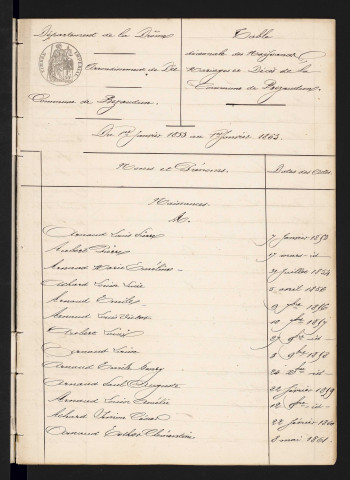 Département de la Drôme
Arrondissement de Die
Commune de Bezaudun
Table
décennale des Naissances,
Mariages et Décès de la
Commune de Bezaudun
Du 1er janvier 1853 au 1er janvier 1863.
Noms et Prénoms. Dates des Actes
Naissances.
A.
Arnaud Louis Pierre 7 janvier 1853
Aubert Pierre 27 mars id
Arnaud Marie 20 juillet 1854
Achard Louise 5 avril 1856
Arnaud Emile 9 1856
Arnaud Louis 10 1857
Aubert Louis 27 id
Arnaud Louise 1858
Arnaud Emile 24 id
Arnaud Paul Auguste 22 février 1859
Arnaud Louise 12 id
Achard 22 février 1860
Arnaud Esther Clémentine 8 mai 1861